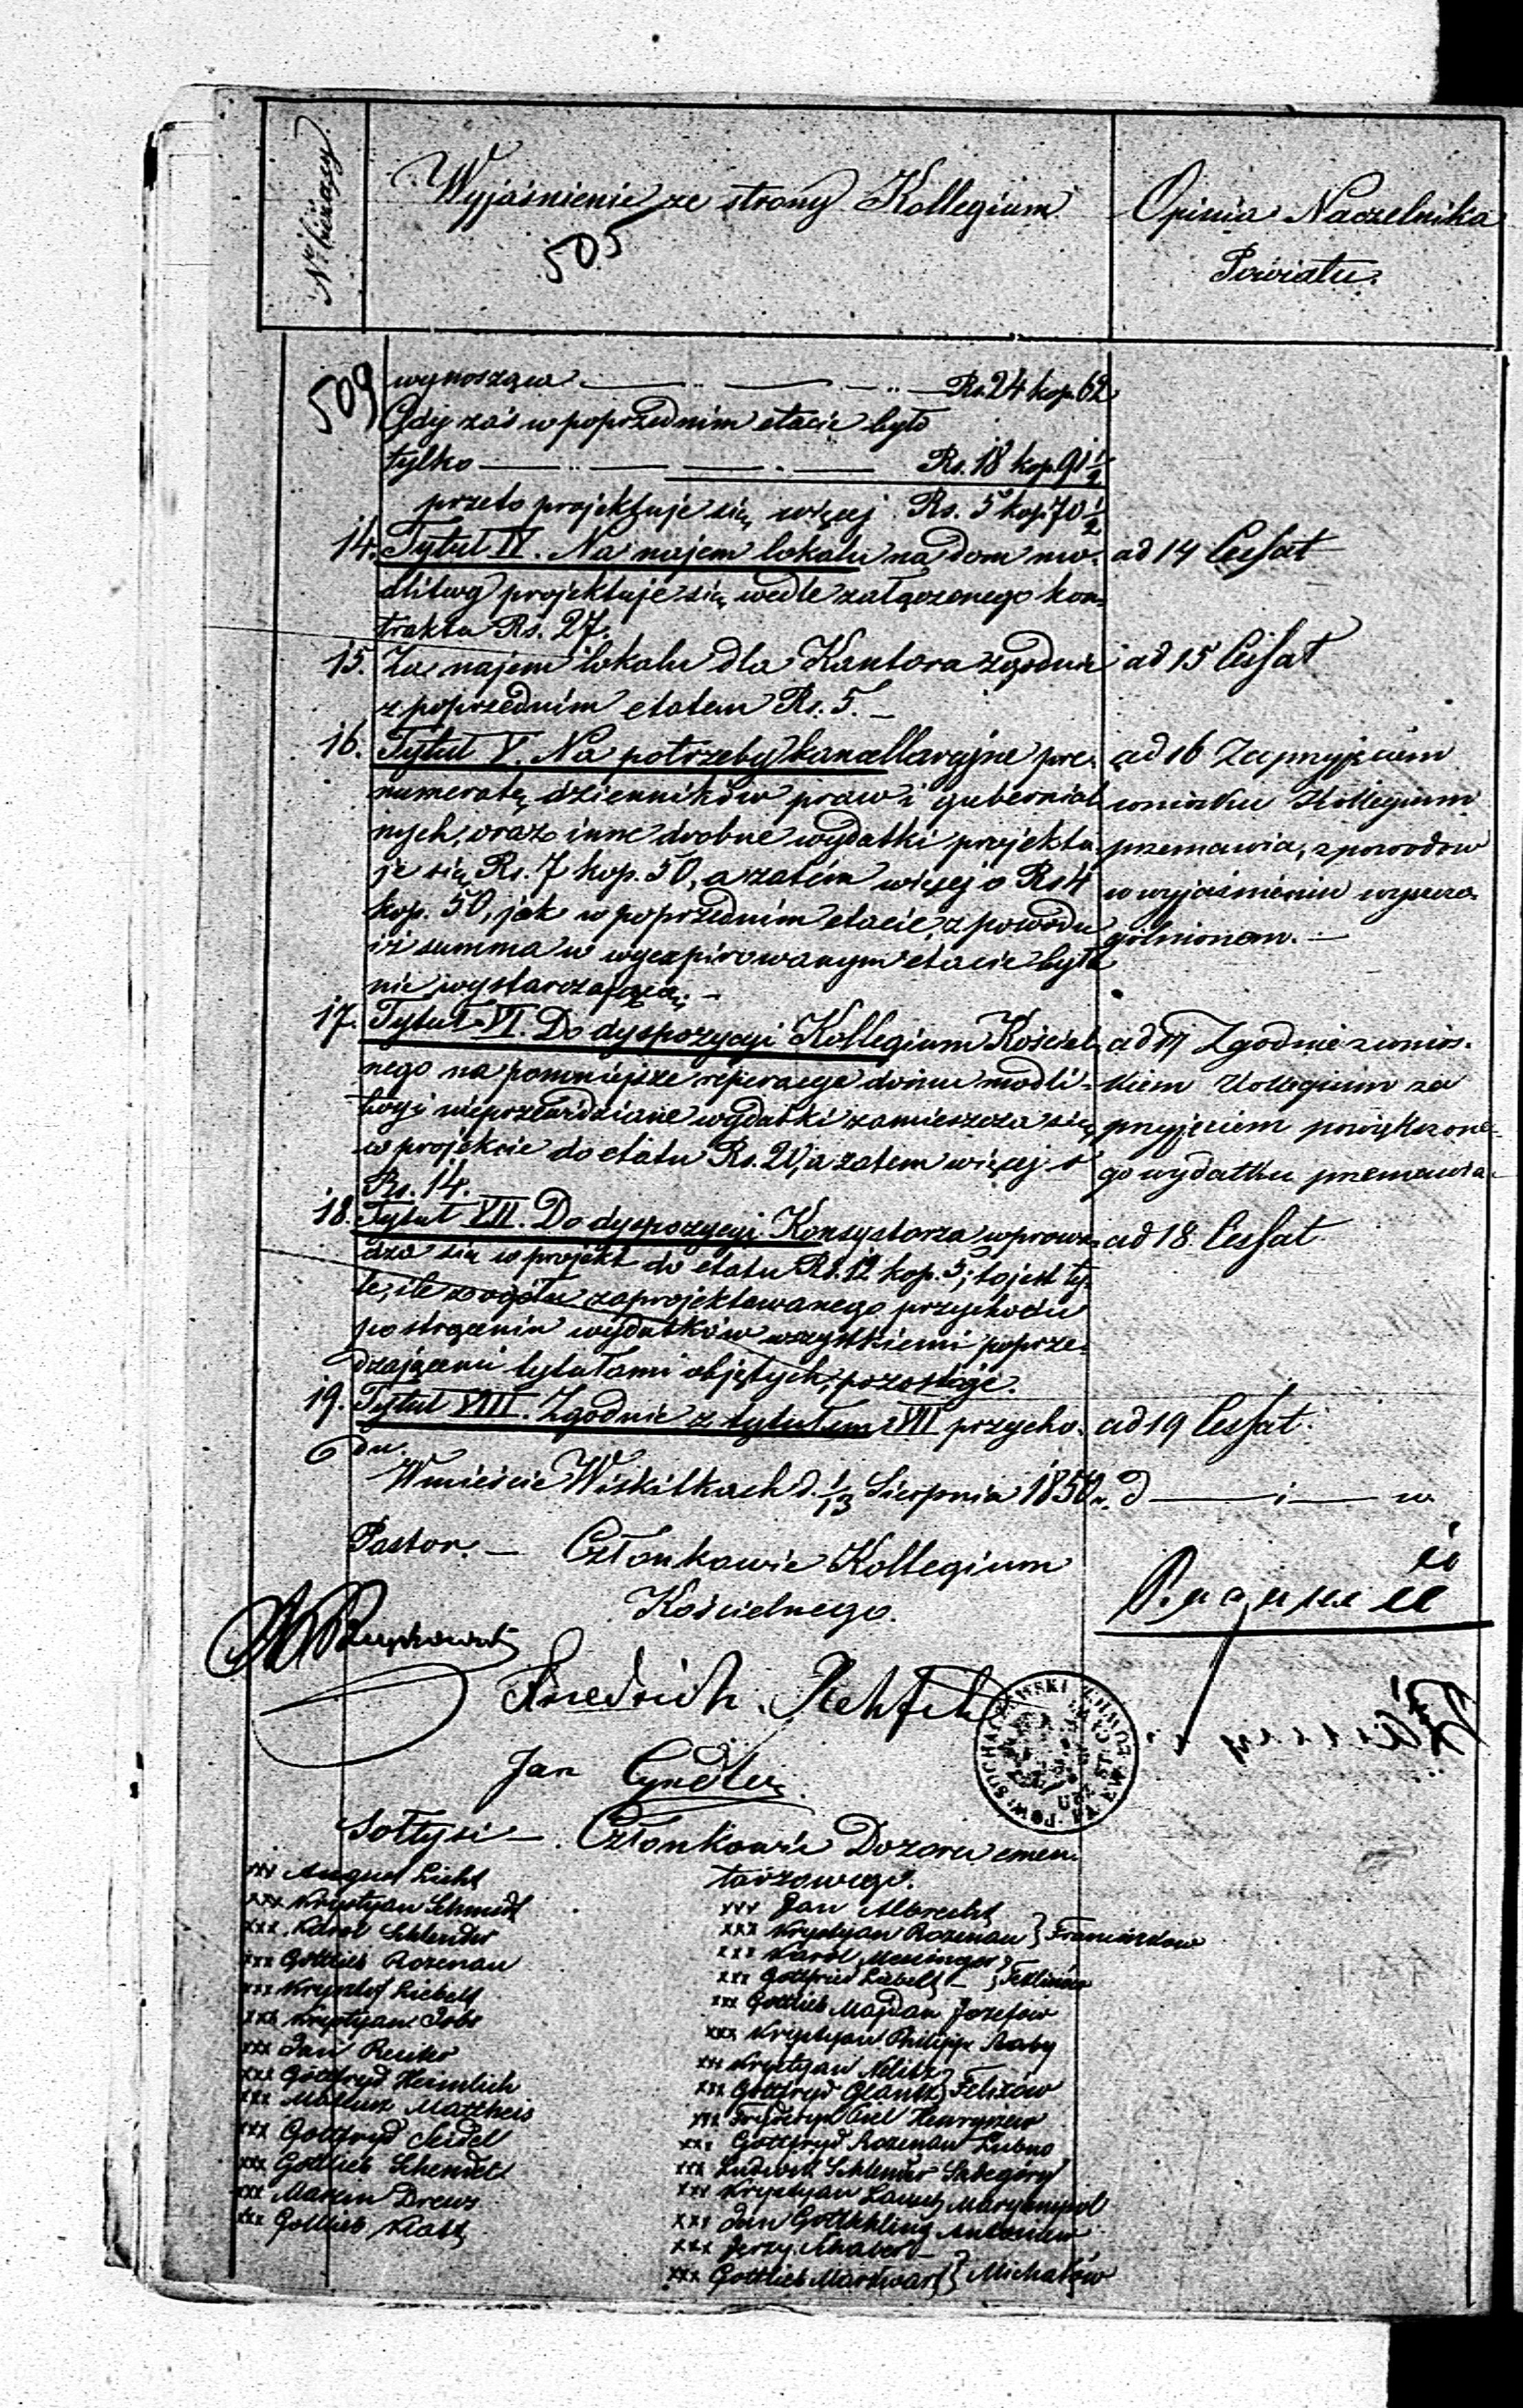 Nr bieżący
Wyjaśnienie ze strony Kollegium
505
Opinia Naczelnika
Powiatu.
509
wynosząca Rs. 24 kop. 62
Gdy zaś w poprzednim etacie było
tylko Rs. 18 kop. 91 1/2
przeto projektuje się więcej Rs. 5 kop. 70 1/2
14. Tytuł IV. Na najem lokalu na dom mo-
dlitwy projektuje się wedle załączonego kon-
traktu Rs. 27.
ad 14 Cessat
15. Za najem lokalu dla Kantora zgodnie
z poprzednim etatem Rs. 5. –
ad 15 Cessat
16. Tytuł V. Na potrzeby kancellaryjne pre-
numeratę dzienników praw i gubernial-
nych, oraz inne drobne wydatki projektu-
je się Rs. 7 kop. 50, a zatém więcej o Rs 4
kop. 50, jak w poprzednim etacie, z powodu
iż summa w wyexpirowanym etacie była
nie wystarczającą. –
ad 16 Za przyjęciem
wniosku Kollegium
przemawia, z powodow
w wyjaśnieniu wyszcze-
gólnionem. –
17. Tytuł VI. Do dyspozycyi Kollegium Kościel-
nego na pomniejsze reperacye domu modli-
twy i nieprzewidziane wydatki zamieszcza się
w projekcie do etatu Rs. 20, a zatem więcej o
Rs. 14.
ad 17 Zgodnie z wnios-
kiem Kollegium za
przyjęciem powiększone-
go wydatku przemawia
18. Tytuł VII. Do dyspozycyi Konsystorza wprowa-
dza się w projekt do etatu Rs. 12 kop. 5; to jest ty-
le, ile z ogółu zaprojektowanego przychodu
po strąceniu wydatków wszystkiemi poprze-
dzającemi tytułami objętych, pozostaje.
ad 18 Cessat
19. Tytuł VIII. Zgodnie z tytułem VII przycho-
du.
ad 19 Cessat
W mieście Wiskitkach d. 1/13 Sierpnia 1850 r.
Pastor. – Członkowie Kollegium
Kościelnego.
Friedrich
Jan Cyndler
Sołtysi – Członkowie Dozoru cmen-
tarzowego.
xxx August Licht
xxx Krystyan Schmidt
xxx Karol Schlender
xxx Gottlieb Rozenau
xxx Krysztof Liebelt
xxx Krystyan
xxx Jan
xxx Gottfryd Heimlich
xxx Mateusz Mattheis
xxx Gottfryd Seidel
xxx Gottlieb Schendel
xxx Marcin Drews
xxx Gottlieb Klatt
xxx Jan Albrecht
xxx Krystyan Rozenau } Franciszkow
xxx Karol }
xxx Gottfried Liebelt – } Feklinów
xxx Gottlieb Majdan Jozefow
xxx Krystyan Philipp
xxx Krystyan }
xxx Gottfryd } Felixów
xxx Frydryk Henryszew
xxx Gottfryd Rozenau Lubno
xxx Ludwik Schlender
xxx Krystyan Maryampol
xxx Jan Antoniew
xxx Jerzy –
xxx Gottlieb Markwart } Michałów